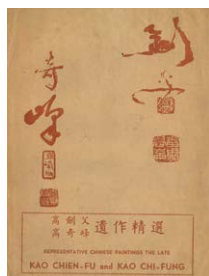 劍父
奇峰
高劍父
高奇峰
遺作精選
REPRESENTATIVE CHINESE PAINTINGS THE LATE
KAO CHIEN-FU and KAO CHI-FUNG